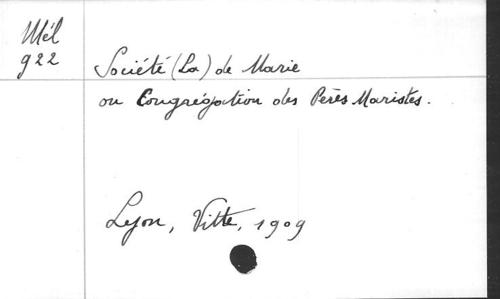 Mél
922
Société (La) de Marie
ou Congrégation des Pères Maristes.
Lyon, Vitte, 1909